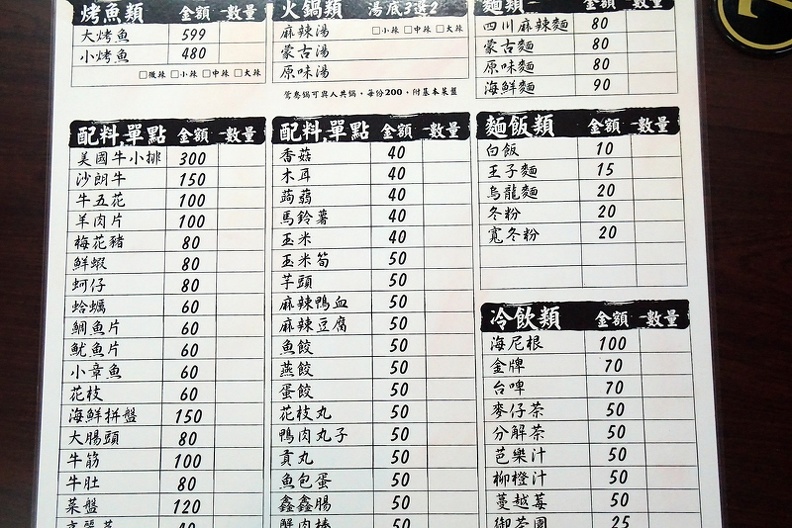 烤魚類 金額 數量
大烤魚 599
小烤魚 480
□微辣 □小辣 □中辣 □大辣
火鍋類 湯底3選2
麻辣湯 □小辣 □中辣 □大辣
蒙古湯
原味湯
鴛鴦鍋可與人共鍋,每份200,附基本菜盤
麵類
四川麻辣麵 80
蒙古麵 80
原味麵 80
海鮮麵 90
配料,單點 金額 數量
美國牛小排 300
沙朗牛 150
牛五花 100
羊肉片 100
梅花豬 80
鮮蝦 80
蚵仔 80
蛤蠣 60
鯛魚片 60
魷魚片 60
小章魚 60
花枝 60
海鮮拼盤 150
大腸頭 80
牛筋 100
牛肚 80
菜盤 120
配料,單點 金額 數量
香菇 40
木耳 40
蒟蒻 40
馬鈴薯 40
玉米 40
玉米筍 50
芋頭 50
麻辣鴨血 50
麻辣豆腐 50
魚餃 50
燕餃 50
蛋餃 50
花枝丸 50
鴨肉丸子 50
貢丸 50
魚包蛋 50
鑫鑫腸 50
蟹肉棒 50
麵飯類 金額 數量
白飯 10
王子麵 15
烏龍麵 20
冬粉 20
寬冬粉 20
冷飲類 金額 數量
海尼根 100
金牌 70
台啤 70
麥仔茶 50
分解茶 50
芭樂汁 50
柳橙汁 50
蔓越莓 50
御茶園 25